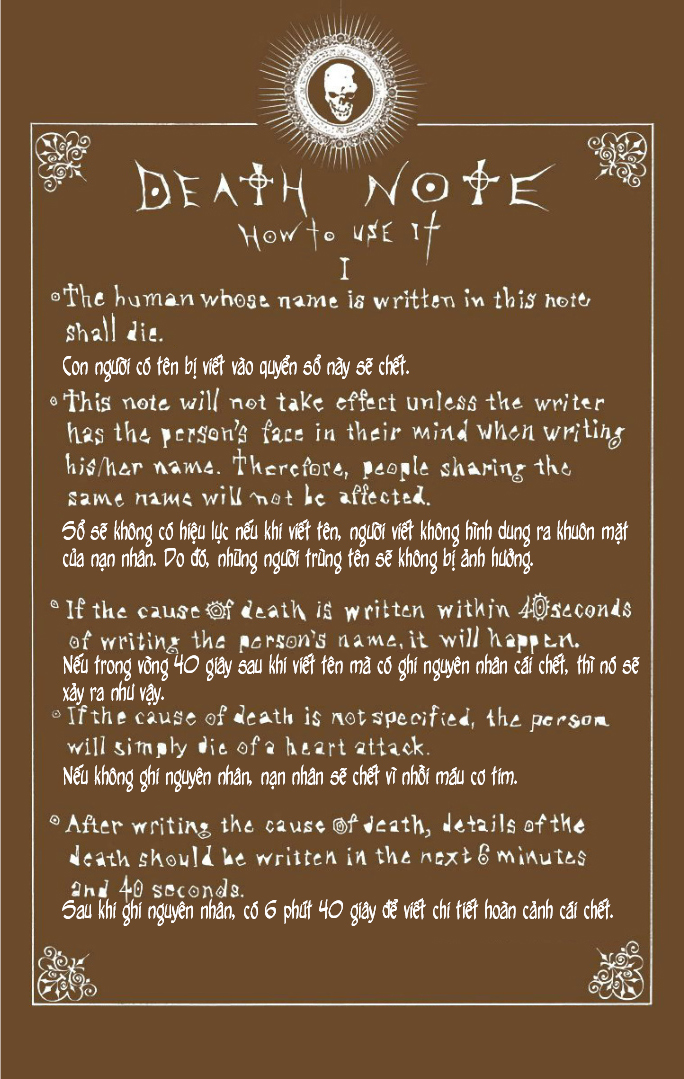 DEATH NOTE
HOW to USE IT
I
The human whose name is written in this note
shall die.
Con người có tên bị viết vào quyển sổ này sẽ chết.
This note will not take effect unless the writer
has the person's face in their mind when writing
his/her name. Therefore, people sharing the
same name will not be affected.
Sổ sẽ không có hiệu lực nếu khi viết tên, người viết không hình dung ra khuôn mặt
của nạn nhân. Do đó, những người trùng tên sẽ không bị ảnh hưởng.
If the cause of death is written within 40 seconds
of writing the person's name, it will happen.
Nếu trong vòng 40 giây sau khi viết tên mà có ghi nguyên nhân cái chết, thì nó sẽ
xảy ra như vậy.
If the cause of death is not specified, the person
will simply die of a heart attack.
Nếu không ghi nguyên nhân, nạn nhân sẽ chết vì nhồi máu cơ tim.
After writing the cause of death, details of the
death should be written in the next 6 minutes
and 40 seconds.
Sau khi ghi nguyên nhân, có 6 phút 40 giây để viết chi tiết hoàn cảnh cái chết.